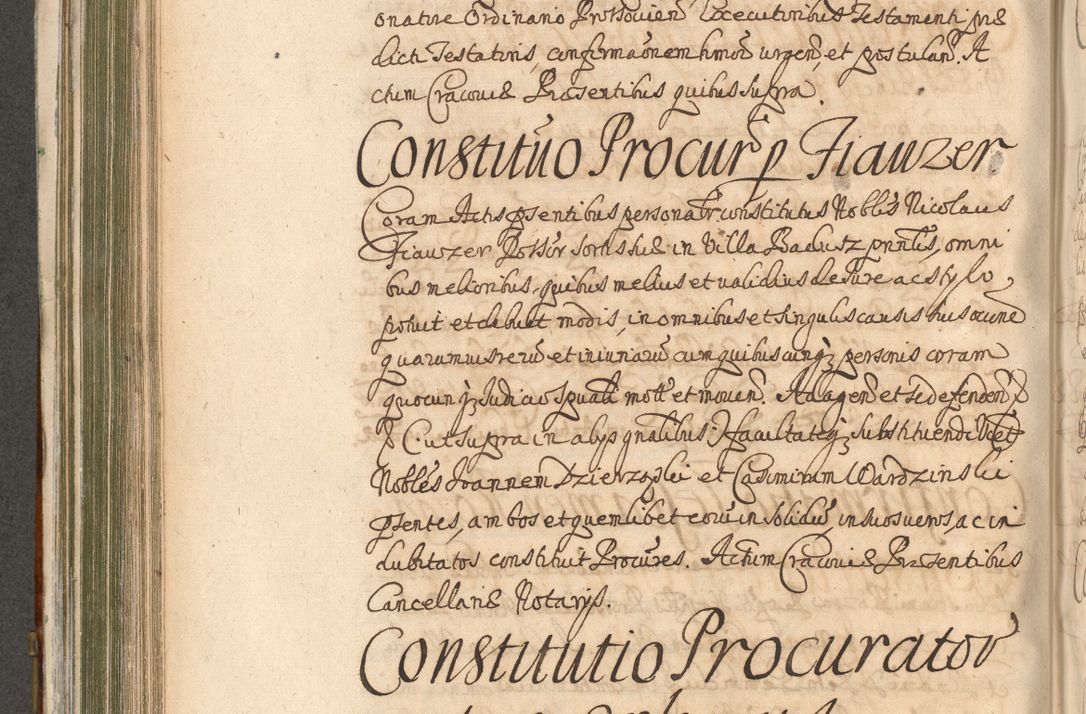 onatore Ordinario Prossovien Executoribus Testamenti præ
dicti Testatoris, confirmaōnem hmōi urgen, et postulan. A
ctum Cracoviæ Præsentibus quibus supra.
Constituō Procur p Fiauzer
Coram Actis psentibus personalr constitutus Nobĺis Nicolaus
Fiauzer Possor sortis suæ in Villa Badusz pnntis, omni
bus melioribus, quibus melius et validius de Iure ac stylo
potuit et debuit modis, in omnibus et singulis causis suis
quarumuis rerū et iniuriarū cum quibuscunqz personis coram
quocunqz Iudicio spuali mott et mouen. Ad agen et se defenden &
& C. ut supra in alijs gnalibus :/ facultateqz substituendi
Nobĺes Joannem Dzierzgski et Casimirum Wardzinski
psentes, ambos et quemlibet eorū in solidū, in suos veros, ac in
dubitatos constituit Procures. Actum Cracoviæ Præsentibus
Cancellariæ Notarijs.
Constitutio Procurator